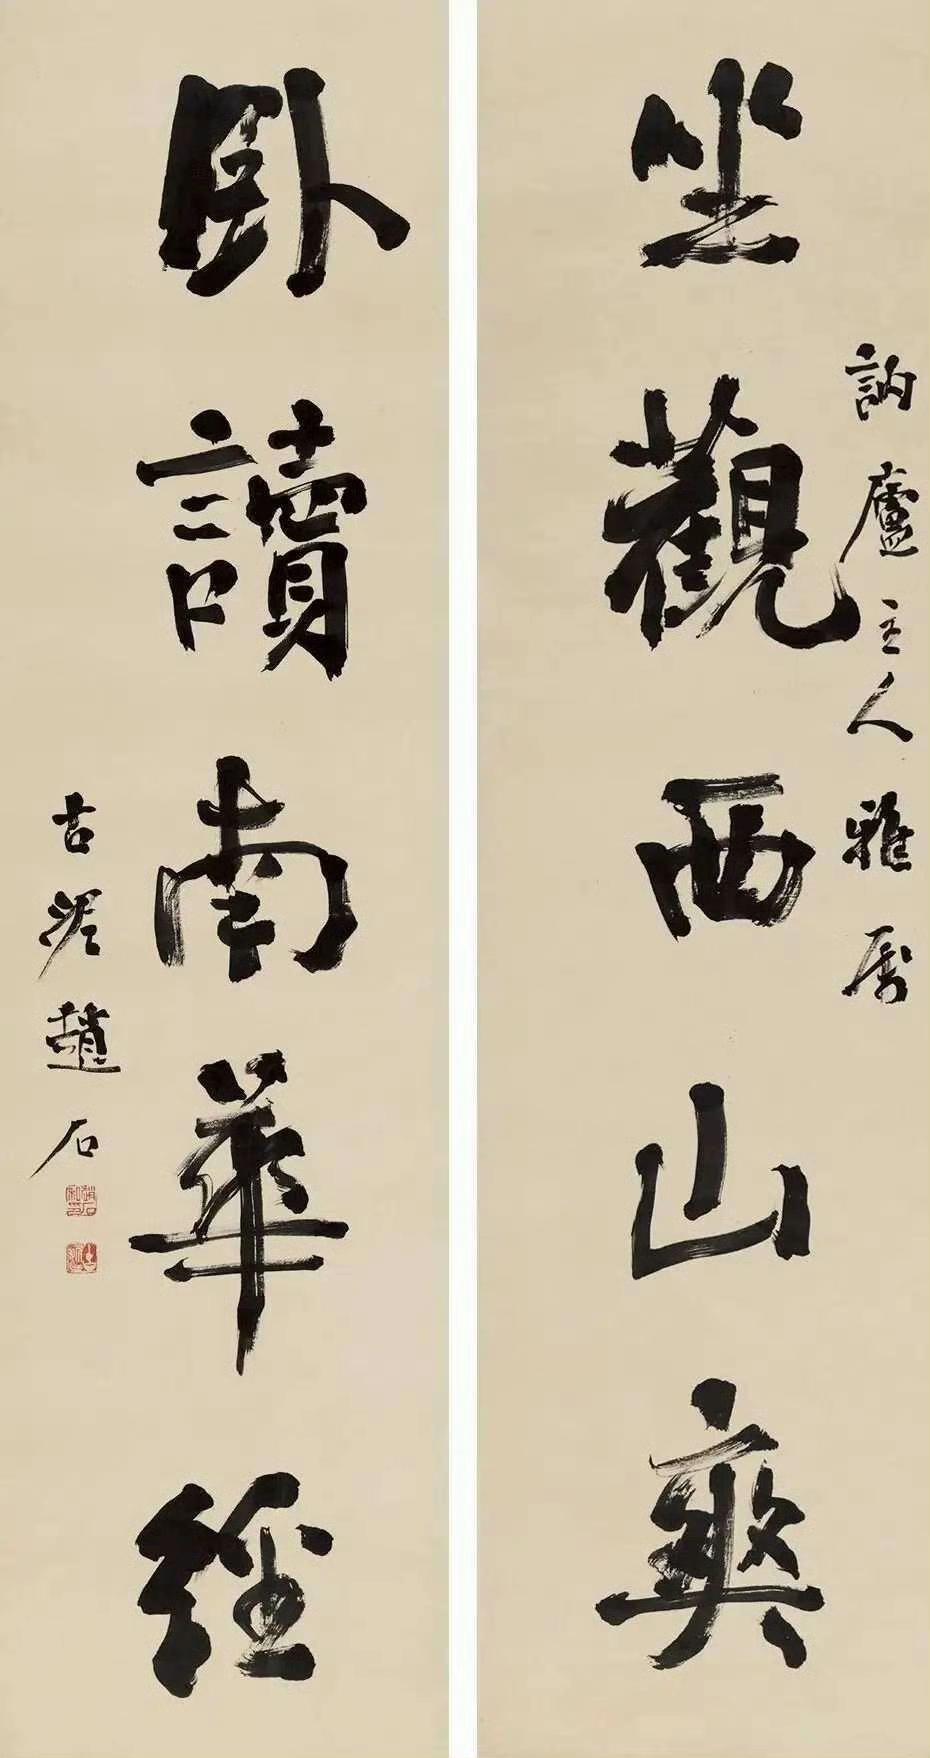 訥廬主人雅属
坐觀西山爽
臥讀南華經
古泥趙石